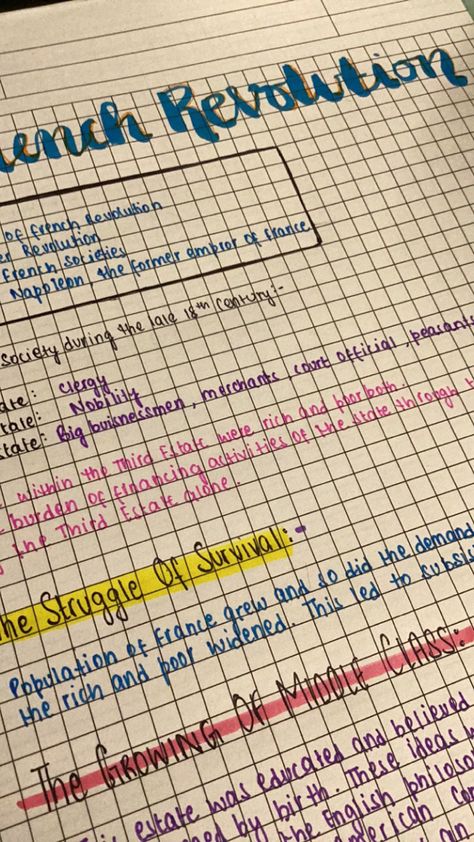 ench Revolution
of French Revolution
er Revolution
French societies
Nappleon, the former empror of France
society during the late 18th century:-
ate: Clergy
tate: Nobility
state: Big buisnessmen, merchants, court official, peasants
within the Third Estate were rich and poor both.
burden of financing activities of the state through
the Third Estate alone.
he Struggle Of Survival:-
Population of France grew and so did the demand
the rich and poor widened. This led to subsis
The Growing Of Middle Class:
estate was educated and believed
by birth. These ideas
the English philoso
American Con